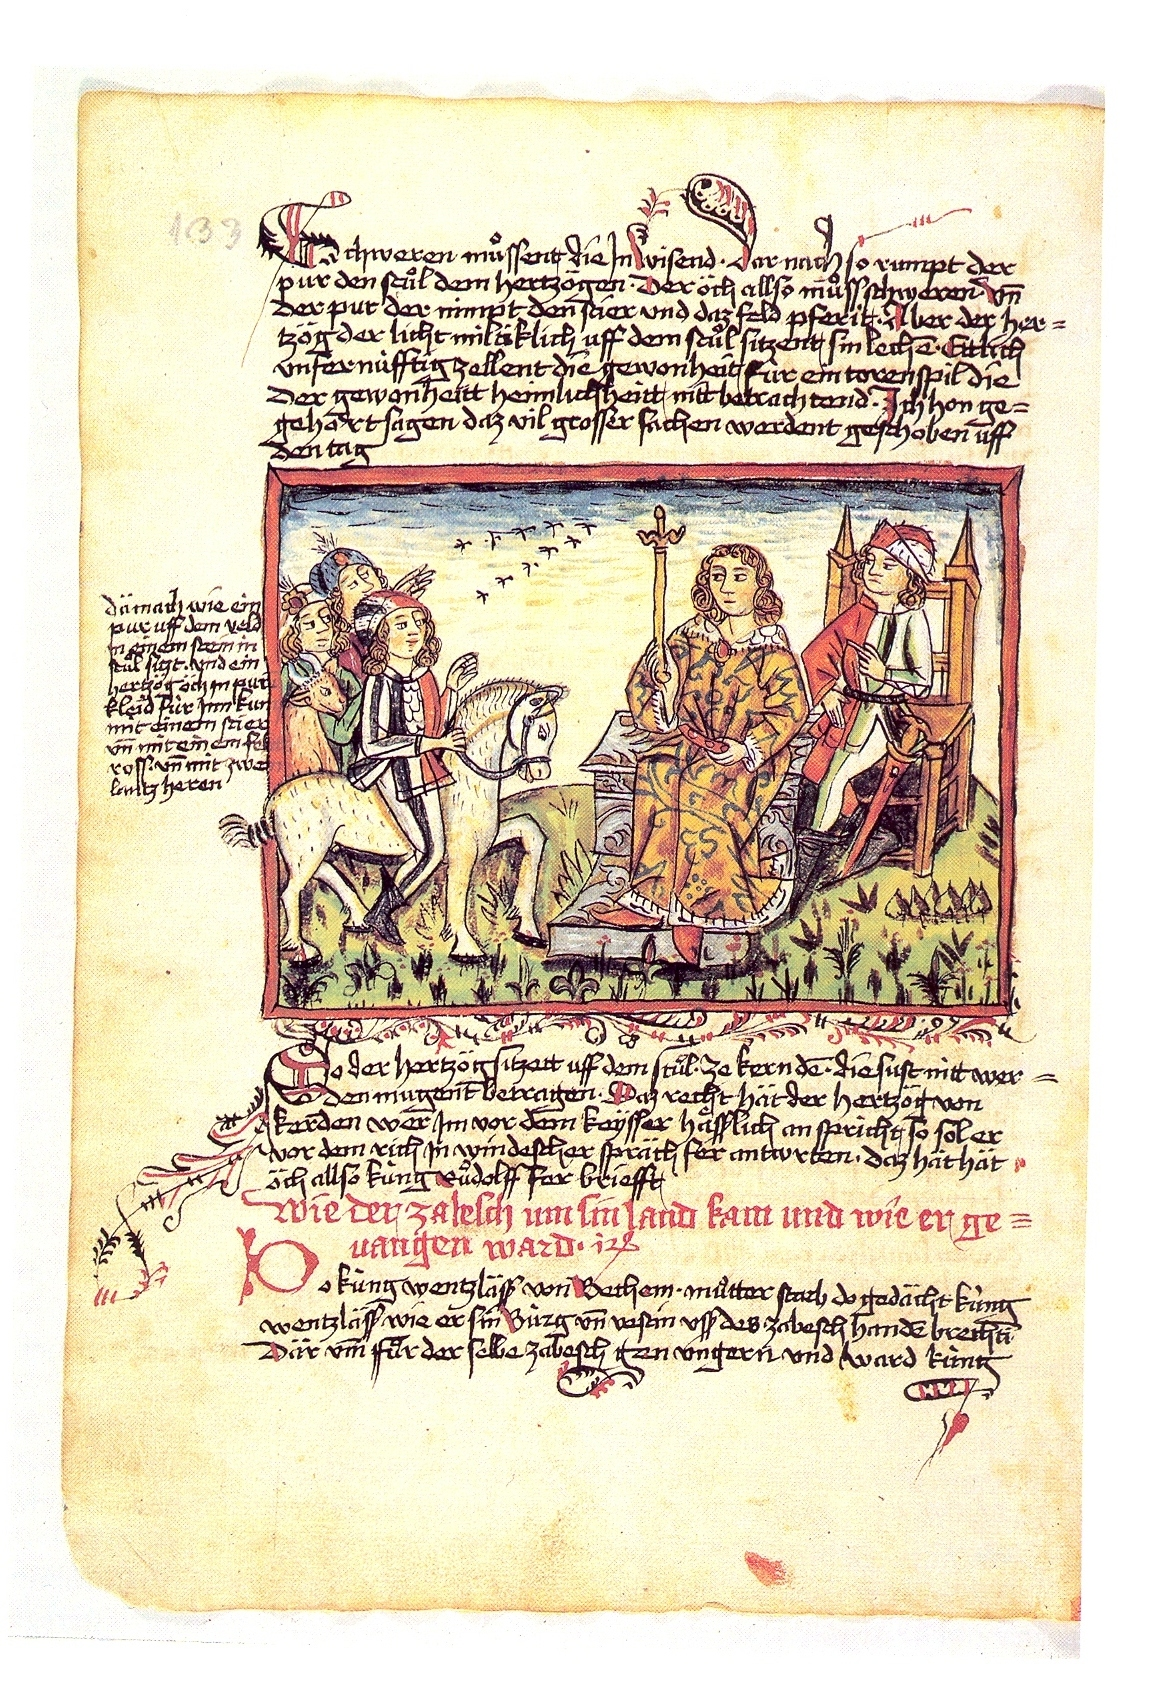 133
Schweren mu̇ssent die Inwisend. Dar nach so rumpt der
pur den stůl dem hertzögen. Der öch allso můss schweren. vn̄
Der pur der nimpt den stier vnd daz feld pferit. Aber der her=
tzög der licht miläklich uff dem stůl sitzent sin lechē. Ettlich
vnfernüfftig zellent die gewonheit für ein torenspil die
Der gewonheitt heimlichheitt nitt betrachtend. Ich hon ge=
gehört sagen daz vil grosser sachen werdent geschoben uff
den tag
dü nach wie ein
pur uff dem veld
in einem stein in
stůl sitzt. vnd ein
hertzög öch in pur
kleid für Inn kun
mit einem stier
vn̄ mit einem fel
ross. vn̄ mit zwe
lantz heren
So der hertzög sitzett uff dem stůl. ze kernde. die sust nitt wer=
den mugent betragen. Daz recht hät der hertzög von
kerden wer Im vor dem keysser häfflich an spricht so sol er
vor dem rich In windescher spräch fer antwrten. daz hät hät
öch allso küng růdolff fer briefft
Wie der zabesch um sin land kam und wie er ge=
uangen ward.
Do küng wentzläss von Bechem. můtter starb do gedächt küng
wentzläss wie er sin Bürg vn̄ vestin uss des zabesch handē brechti
Där vm̄ fůr der selbe zabesch gen vngern vnd ward küng